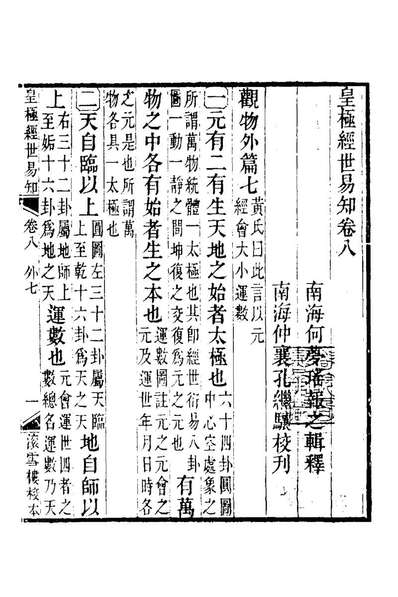 皇極經世易知卷八
南海何夢瑤報之輯釋
南海仲襄孔繼驤校刊
觀物外篇七 黃氏曰此言以元
經會大小運數
一元有二有生天地之始者太極也 六十四卦圓圖
中心空處象之
所謂萬物統體一太極也其卽經世衍易八卦
圖一動一靜之間坤復之交復爲元之元也 有萬
物之中各有始者生之本也 運數圖註元之元會之
元及運世年月日時各
之元是也所謂萬
物各具一太極也
二天自臨以上 圓圖左三十二卦屬天臨
上至乾十六卦爲天之天 地自師以
上 右三十二卦屬地師上
至姤十六卦爲地之天 運數也 元會運世四者之
數總名運數乃天
皇極經世易知 卷八 外七 一 滾雪樓校本